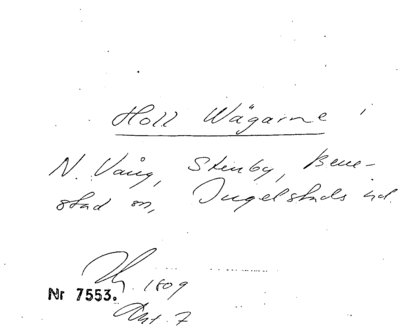 Holl Wägarne
N. Vång, Stenby, Bene-
stad sn, Ingelstads hd.
1809
Nr 7553.
Akt. 7